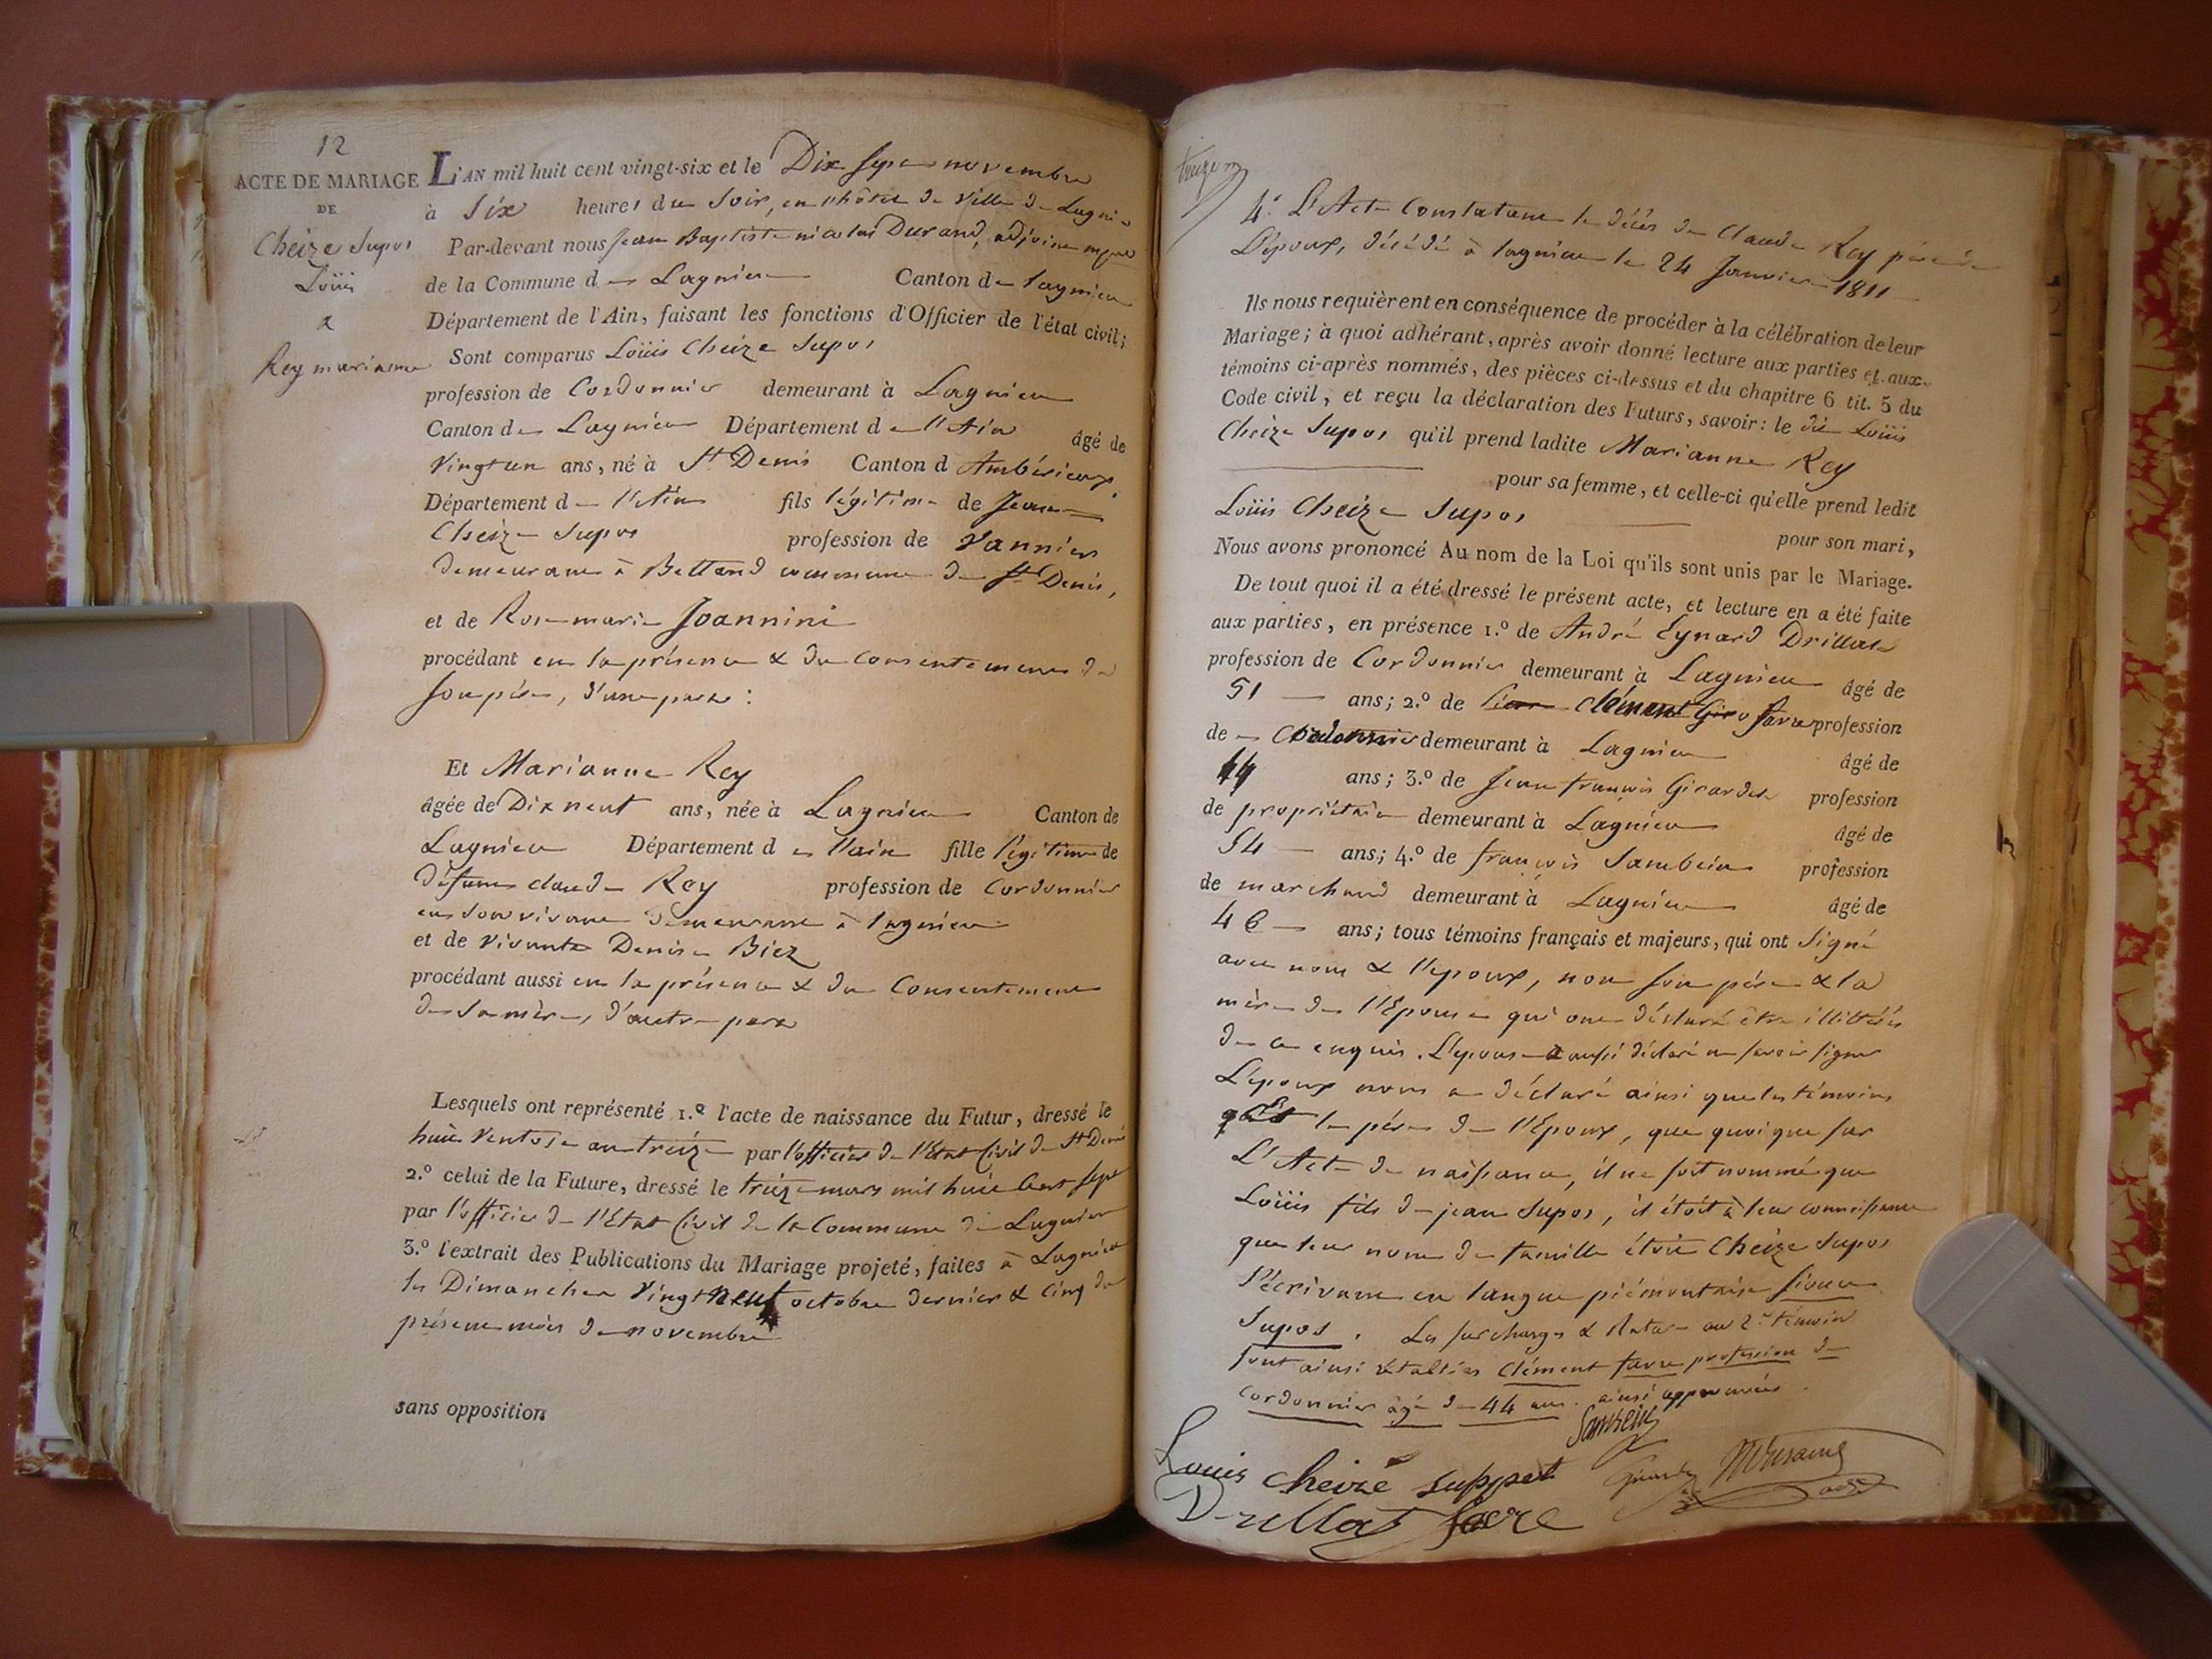 12
ACTE DE MARIAGE
DE
Cheize Supos
Loüis
&
Rey marianne
L'AN mil huit cent vingt-six et le Dix Sept novembre
à Six heures du Soir, en l'hôtel de Ville de Lagnieu
Par-devant nous Jean Baptiste nicolas Durand, adjoint
de la Commune de Lagnieu Canton de Lagnieu
Département de l'Ain, faisant les fonctions d'Officier de l'état civil;
Sont comparus Loüis Cheize Supos
profession de Cordonnier demeurant à Lagnieu
Canton de Lagnieu Département de l'Ain âgé de
Vingt un ans, né à St Denis Canton d'Ambérieux,
Département de l'Ain fils légitime de Jean
Cheize Supos profession de Vannier
demeurant à Bettand commune de St Denis,
et de Rose marie Joannini
procédant en la présence & du Consentement de
Son père, d'une part :
Et Marianne Rey
âgée de Dix neuf ans, née à Lagnieu Canton de
Lagnieu Département de l'ain fille légitime de
Défunt claude Rey profession de Cordonnier
en son vivant demeurant à lagnieu
et de vivante Denise Biez
procédant aussi en la présence & du Consentement
de Sa mère, d'autre part
Lesquels ont représenté 1.º l'acte de naissance du Futur, dressé le
huit Ventose an treize par l'officier de l'Etat Civil de St Denis
2.º celui de la Future, dressé le treize mars mil huit Cent Sept
par l'officier de l'Etat Civil de la Commune de Lagnieu
3.º l'extrait des Publications du Mariage projeté, faites à Lagnieu
les Dimanches Vingt neuf octobre dernier & Cinq du
présent mois de novembre
sans opposition
4.º L'Acte Constatant le décès de Claude Rey père de
L'époux, décédé à lagnieu le 24 Janvier 1811
Ils nous requièrent en conséquence de procéder à la célébration de leur
Mariage; à quoi adhérant, après avoir donné lecture aux parties et aux
témoins ci-après nommés, des pièces ci-dessus et du chapitre 6 tit. 5 du
Code civil, et reçu la déclaration des Futurs, savoir: le dit Loüis
Cheize Supos qu'il prend ladite Marianne Rey
pour sa femme, et celle-ci qu'elle prend ledit
Loüis Cheize Supos pour son mari,
Nous avons prononcé Au nom de la Loi qu'ils sont unis par le Mariage.
De tout quoi il a été dressé le présent acte, et lecture en a été faite
aux parties, en présence 1.º de André Eynard Drillat
profession de Cordonnier demeurant à Lagnieu âgé de
51 ans; 2.º de Clément favre profession
de Cordonnier demeurant à Lagnieu âgé de
44 ans; 3.º de Jean françois Girardet profession
de propriétaire demeurant à Lagnieu âgé de
54 ans; 4.º de françois Sambein profession
de marchand demeurant à Lagnieu âgé de
46 ans; tous témoins français et majeurs, qui ont Signé
avec nous & l'époux, non son père & la
mère de l'Epouse qui ont déclaré être illittérés
de ce enquis. L'épouse a aussi déclaré ne savoir signer
L'époux nous a déclaré ainsi que les témoins
Et le père de l'Epoux, que quoique sur
L'Acte de naissance, il ne soit nommé que
Loüis fils de jean Supos, il étoit à leur connoissance
que leur nom de famille étoit Cheize Supos
S'écrivant en langue piémontaise
Supos. Les surcharges & Rature au 2.e témoin
sont ainsi rétablies Clément favre profession de
cordonnier âgé de 44 ans. ainsi approuvées.
Sambein
Louis cheize suppet Girardet
Drillat favre